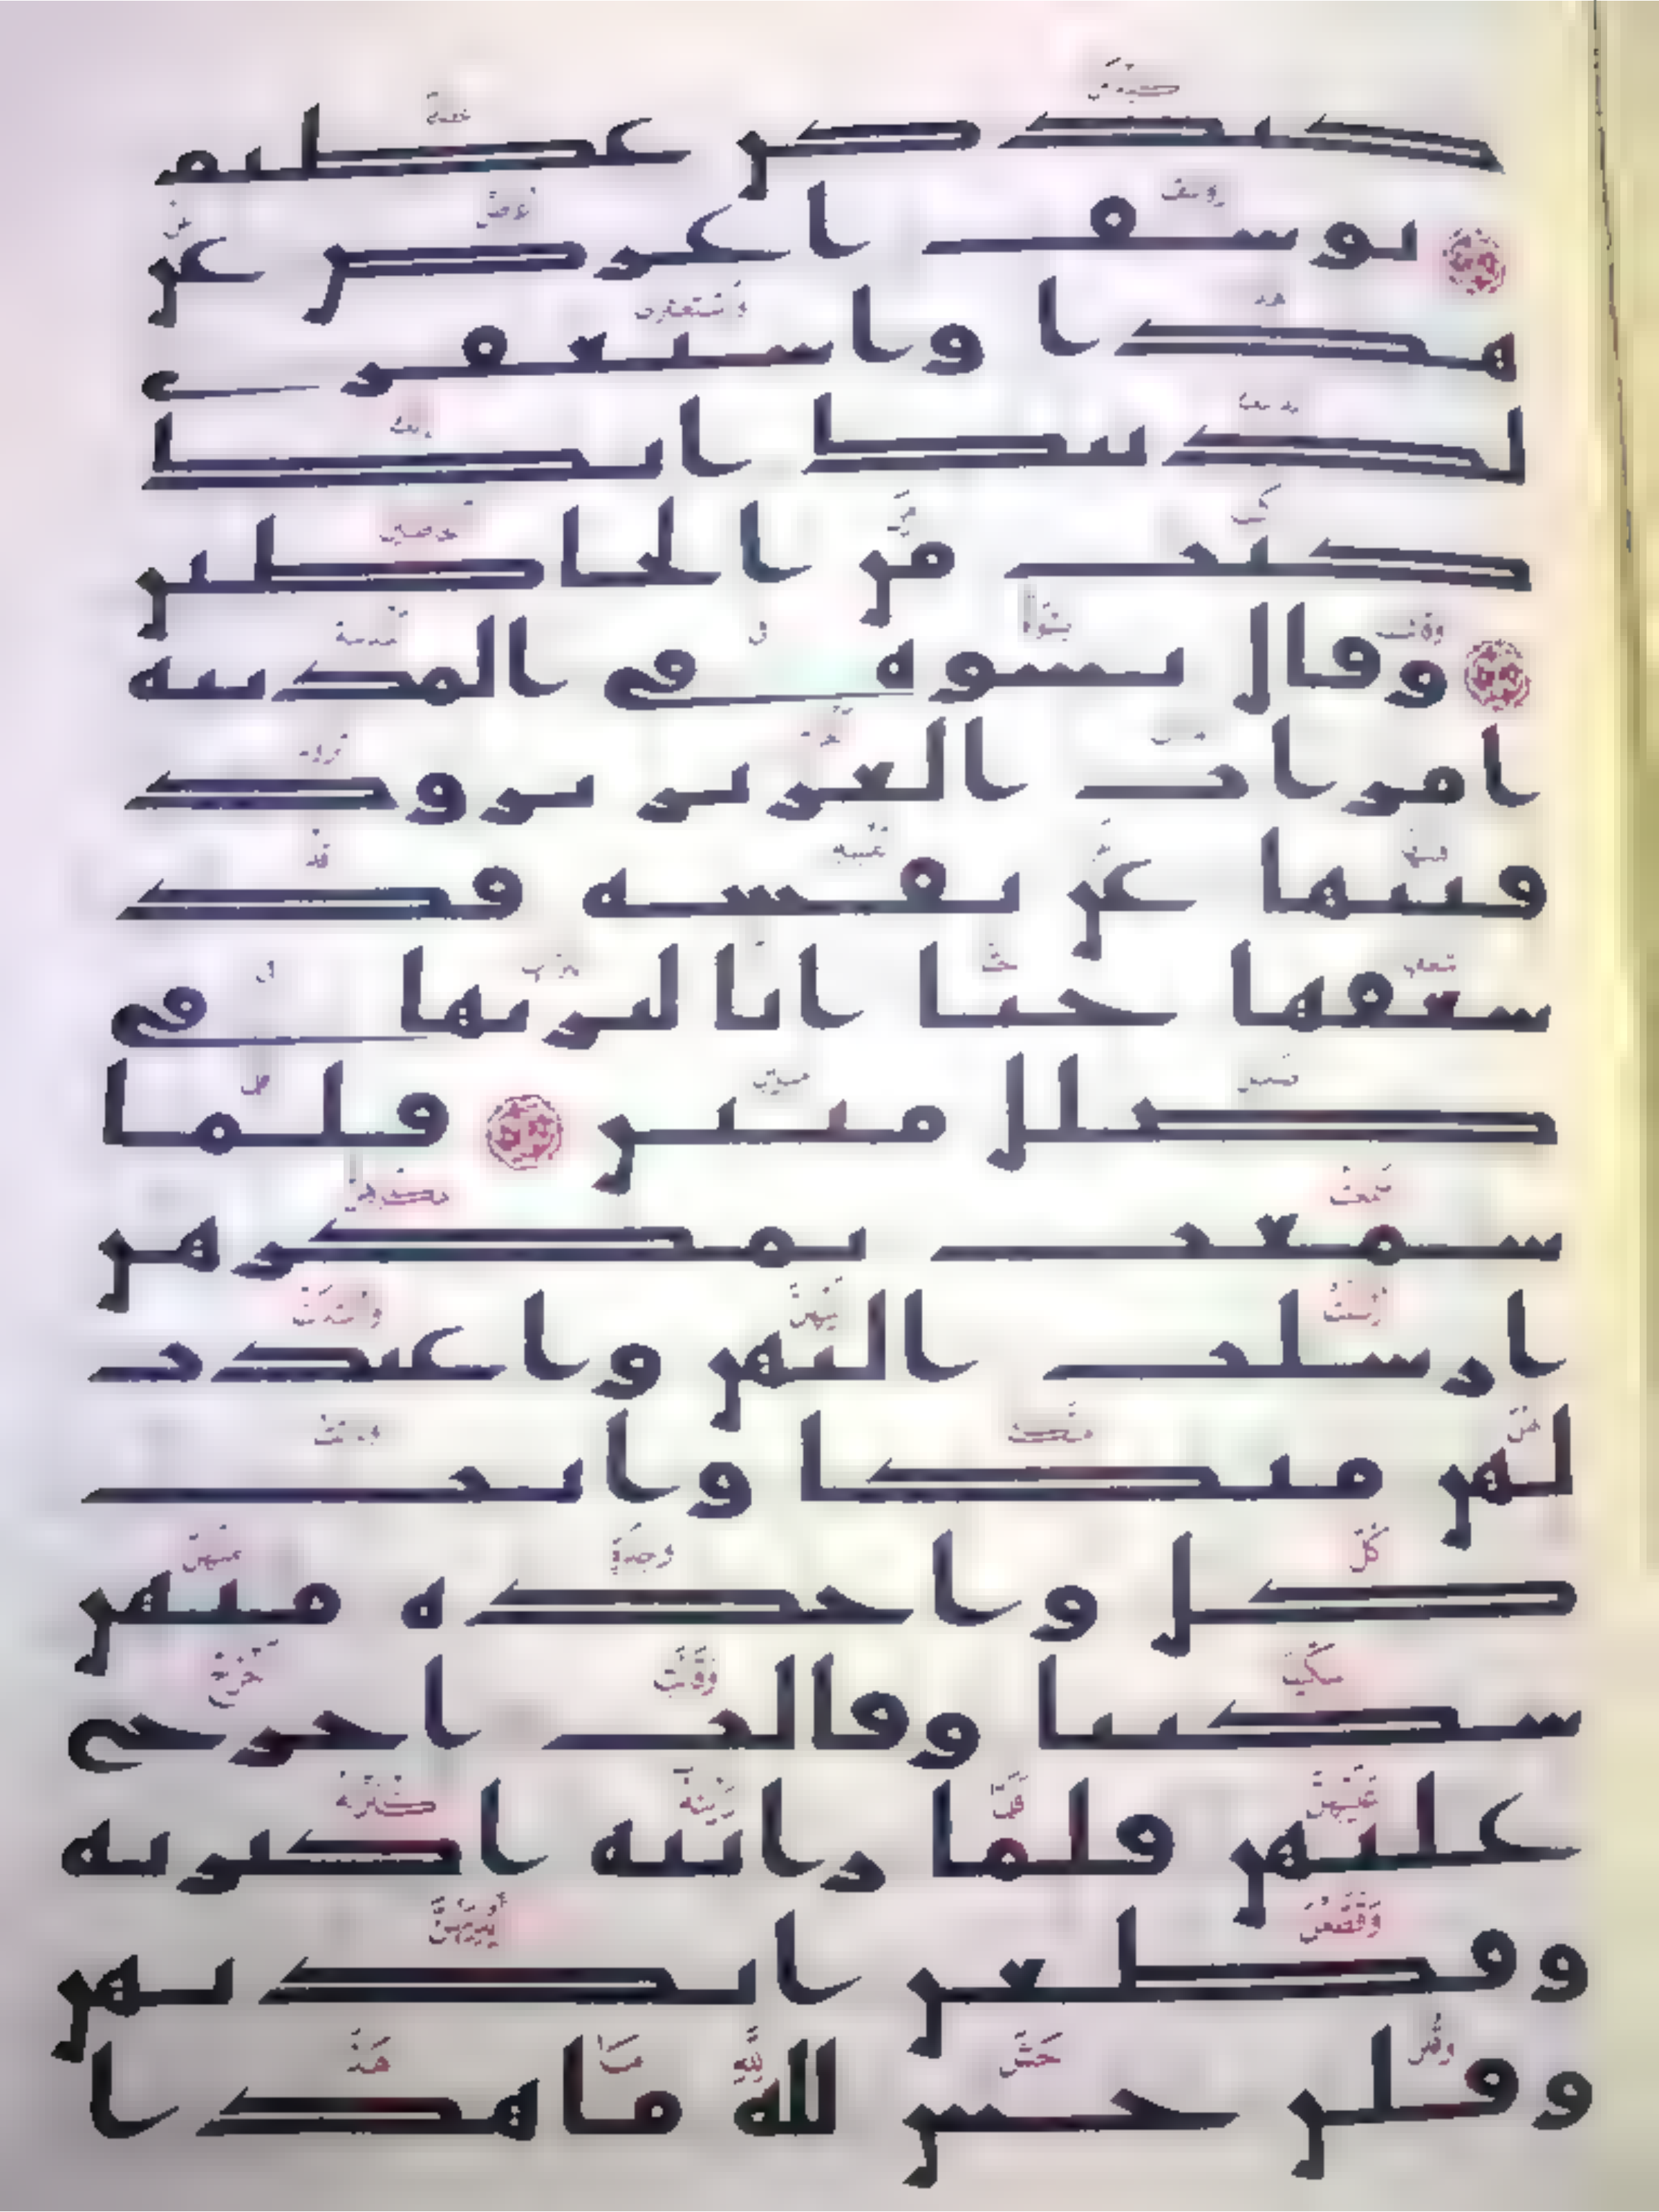 كيدكن عظيم
يوسف اعرض عن
هذا واستغفري
لذنبك انك
كنت من الخاطين
وقال نسوة في المدينة
امرات العزيز ترود
فتيها عن نفسه قد
شغفها حبا انا لنريها في
ضلل مبين فلما
سمعت بمكرهن
ارسلت اليهن واعتدت
لهن متكا واتت
كل واحدة منهن
سكينا وقالت اخرج
عليهن فلما راينه اكبرنه
وقطعن ايديهن
وقلن حش لله ما هذا